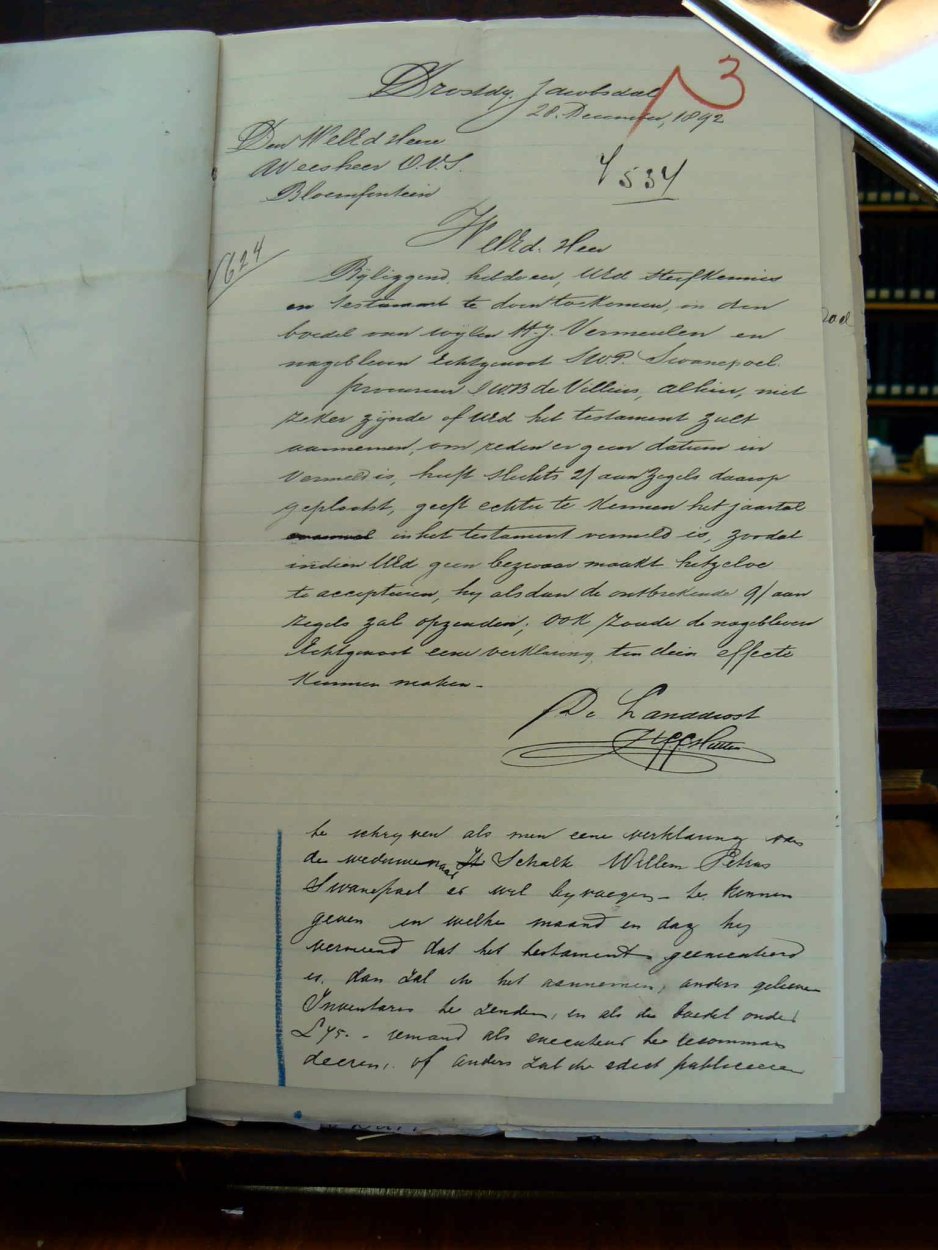 Drostdy, Jacobsdal
28. December, 1892
3
Den WelEd Heere
Weesheer O.V.S.
Bloemfontein
534
624
WelEd. Heer
Bijliggend, heb de eer, UEd sterfkennis
en testament te doen toekomen, in den
boedel van wijlen H.J. Vermeulen en
nagebleven Echtgenoot S.W.P. Swanepoel.
procureur I W B de Villiers, alhier, niet
zeker zijnde of UEd het testament zult
aannemen, om reden er geen datum in
vermeld is, heeft slechts 2/ aan zegels daarop
geplaatst, geeft echter te kennen het jaartal
in het testament vermeld is, zoodat
indien UEd geen bezwaar maakt hetzelve
te accepteeren, hij alsdan de ontbrekende 9/ aan
zegels zal opzenden; ook zoude de nagebleven
Echtgenoot eene verklaring, ten dien effecte
kunnen maken.
De Landdrost
te schryven als men eene verklaring van
de weduwenaar Schalk Willem Petrus
Swanepoel er wil byvoegen - te kennen
geven in welke maand en dag hy
vermeend dat het testament gemaakt
is, dan zal ik het aannemen, anders gelieve
Inventaris te zenden, en als de boedel onder
£75. - iemand als executeur te recomman
deeren, of anders zal ik edict publiceeren